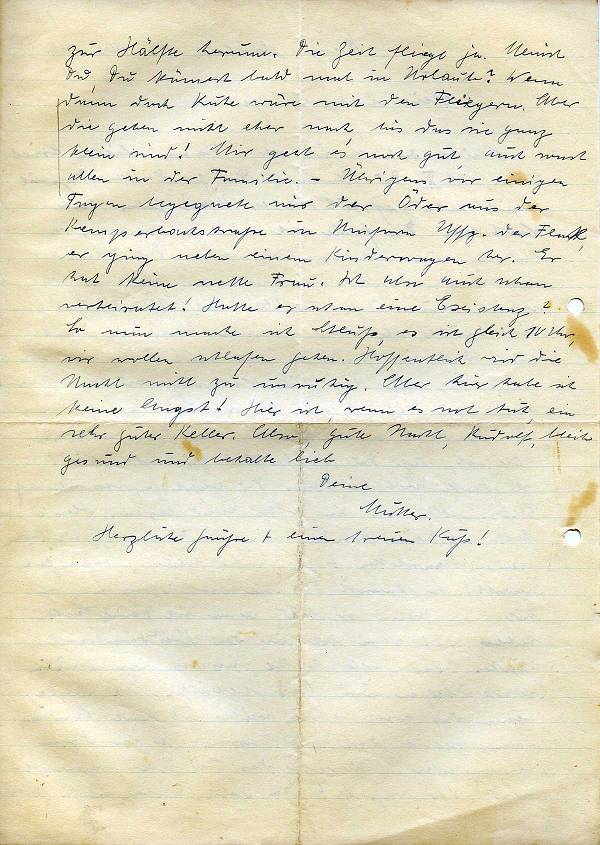 zur Hälfte herum. Die Zeit fliegt ja. Meinst
Du, Du kämest bald mal in Urlaub? Wenn
dann doch Ruhe wäre mit den Fliegern. Aber
die geben nicht eher nach bis das sie ganz
klein sind! Mir geht es noch gut, auch sonst
allen in der Familie. – Übrigens, vor einigen
Tagen begegnete mir der Öder aus der
in Uniform Uffz. der Flack,
er ging neben einem Kinderwagen her. Er
hat keine nette Frau. Ist also auch schon
verheiratet! Hatte er schon eine Existenz?
So nun mache ich Schluß, es ist gleich 10 Uhr,
wir wollen schlafen gehen. Hoffentlich wird die
Nacht nicht zu unruhig. Aber hier habe ich
keine Angst! Hier ist, wenn es not tut, ein
sehr guter Keller. Also, gute Nacht, Rudolf, bleib
gesund und behalte lieb
Deine
Mutter.
Herzliche Grüße + einen treuen Kuß!